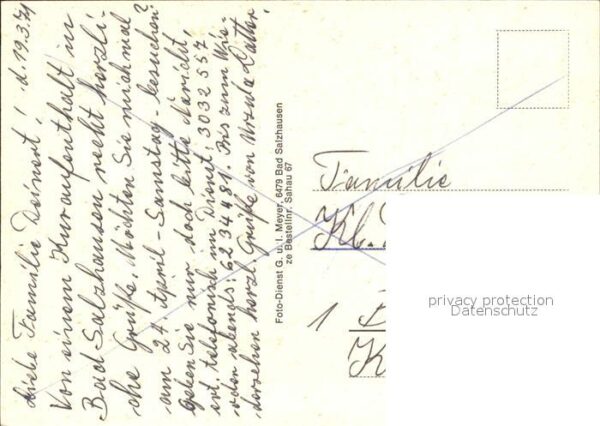 Liebe Familie Deinert! d. 19.3.71
Von einem Kuraufenthalt in
Bad Salzhausen recht herzli-
che Grüße. Möchten Sie mich mal
am 24 April - Samstag - besuchen?
Geben Sie mir doch bitte Naricht,
evt. telefonisch im Dienst: 3032557
oder abends: 6234481. Bis zum Wie-
dersehen herzl. Grüße von Ursula
Foto-Dienst G. u. I. Meyer, 6479 Bad Salzhausen
ze Bestellnr. Sahau 67
Familie
1
privacy protection
Datenschutz